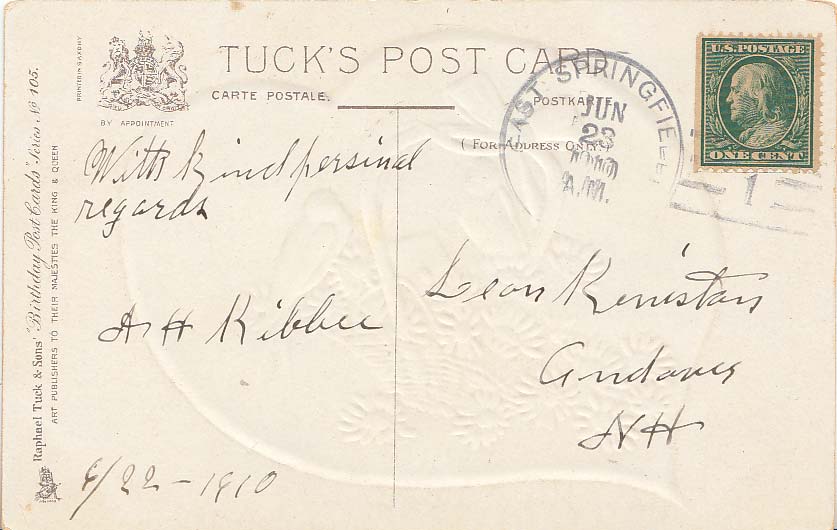 TUCK'S POST CARD
CARTE POSTALE.
POSTKARTE
BY APPOINTMENT
(FOR ADDRESS ONLY)
PRINTED IN SAXONY
Raphael Tuck & Sons' "Birthday Post Cards" Series No 105.
ART PUBLISHERS TO THEIR MAJESTIES THE KING & QUEEN
EAST SPRINGFIEL
JUN
23
1910
A.M.
1
U.S. POSTAGE
ONE CENT
With kind persinal
regards
A H Kibbee
6/22-1910
Leon Keniston
Andover
NH